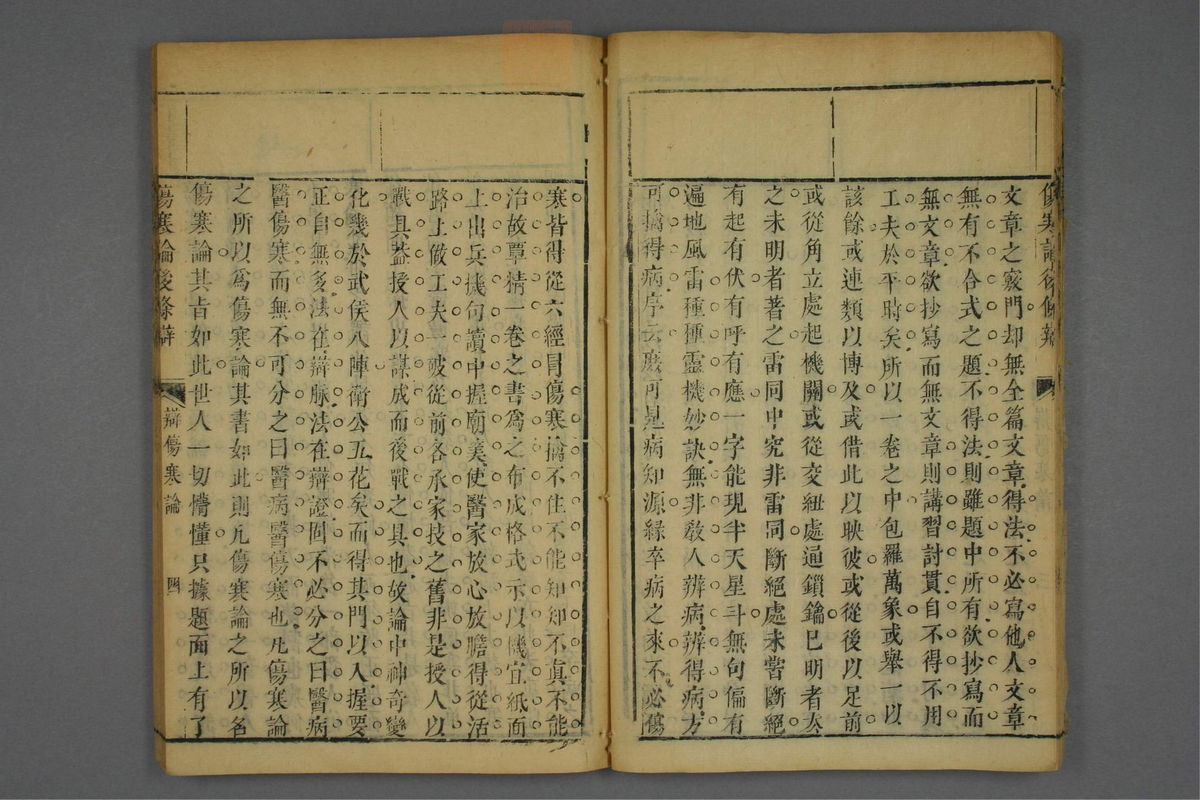 傷寒論後條辨
文章之竅門却無全篇文章得法不必寫他人文章
無有不合式之題不得法則雖題中所有欲抄寫而
無文章欲抄寫而無文章則講習討貫自不得不用
工夫於平時矣所以一卷之中包羅萬象或舉一以
該餘或連類以博及或借此以映彼或從後以足前
或從角立處起機關或從交紐處通鎖鑰已明者
之未明者著之雷同中究非雷同斷絕處未嘗斷絕
有起有伏有呼有應一字能現半天星斗無句偏有
遍地風雷種種靈機妙訣無非教人辨病辨得病方
可擒得病序云庶可見病知源緣卒病之來不必傷
寒皆得從六經冒傷寒擒不住不能知知不真不能
治故覃精一卷之書爲之布成格式示以機宜紙面
上出兵機句讀中握廟筭使醫家放心放膽得從活
路上做工夫一破從前各承家技之舊非是授人以
戰具葢授人以謀成而後戰之具也故論中神奇變
化幾於武侯八陣衛公五花矣而得其門以入握要
正自無多法在辯脈法在辯證固不必分之曰醫病
醫傷寒而無不可分之曰醫病醫傷寒也凡傷寒論
之所以爲傷寒論其書如此則凡傷寒論之所以名
傷寒論其旨如此世人一切懵懂只據題面上有了
傷寒論後條辯
辯傷寒論
四